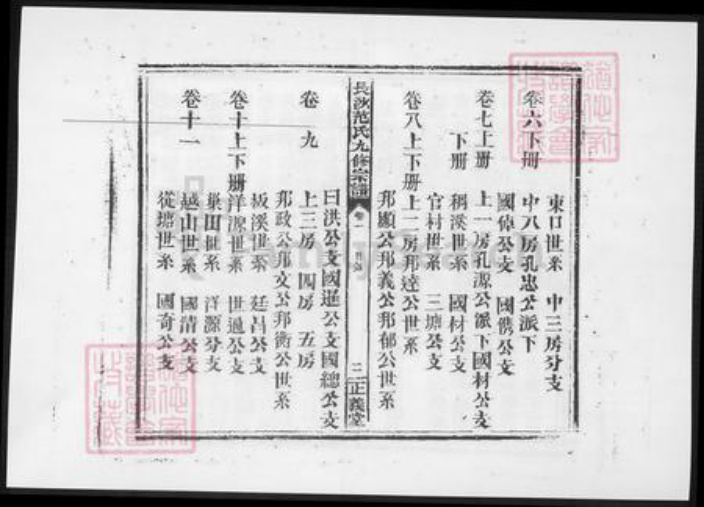 東口世系　中三房分支
卷六下册　中八房孔忠公派下
國倬公支　國儁公支
卷七上册　上一房孔源公派下國材公支
下册　稠溪世系　國材公支
官材世系　三塘公支
卷八上下册　上一房邦達公世系
邦顯公邦義公邦郁公世系
長沙范氏九修宗譜　卷一　目錄　二　正義堂
曰洪公支國暹公支國總公支
卷九　上三房　四房　五房
邦政公邦文公邦衡公世系
板溪世系　廷昌公支
卷十上下册　洋源世系　世通公支
巢田世系　洋源分支
卷十一　越山世系　國清公支
從塘世系　國奇公支